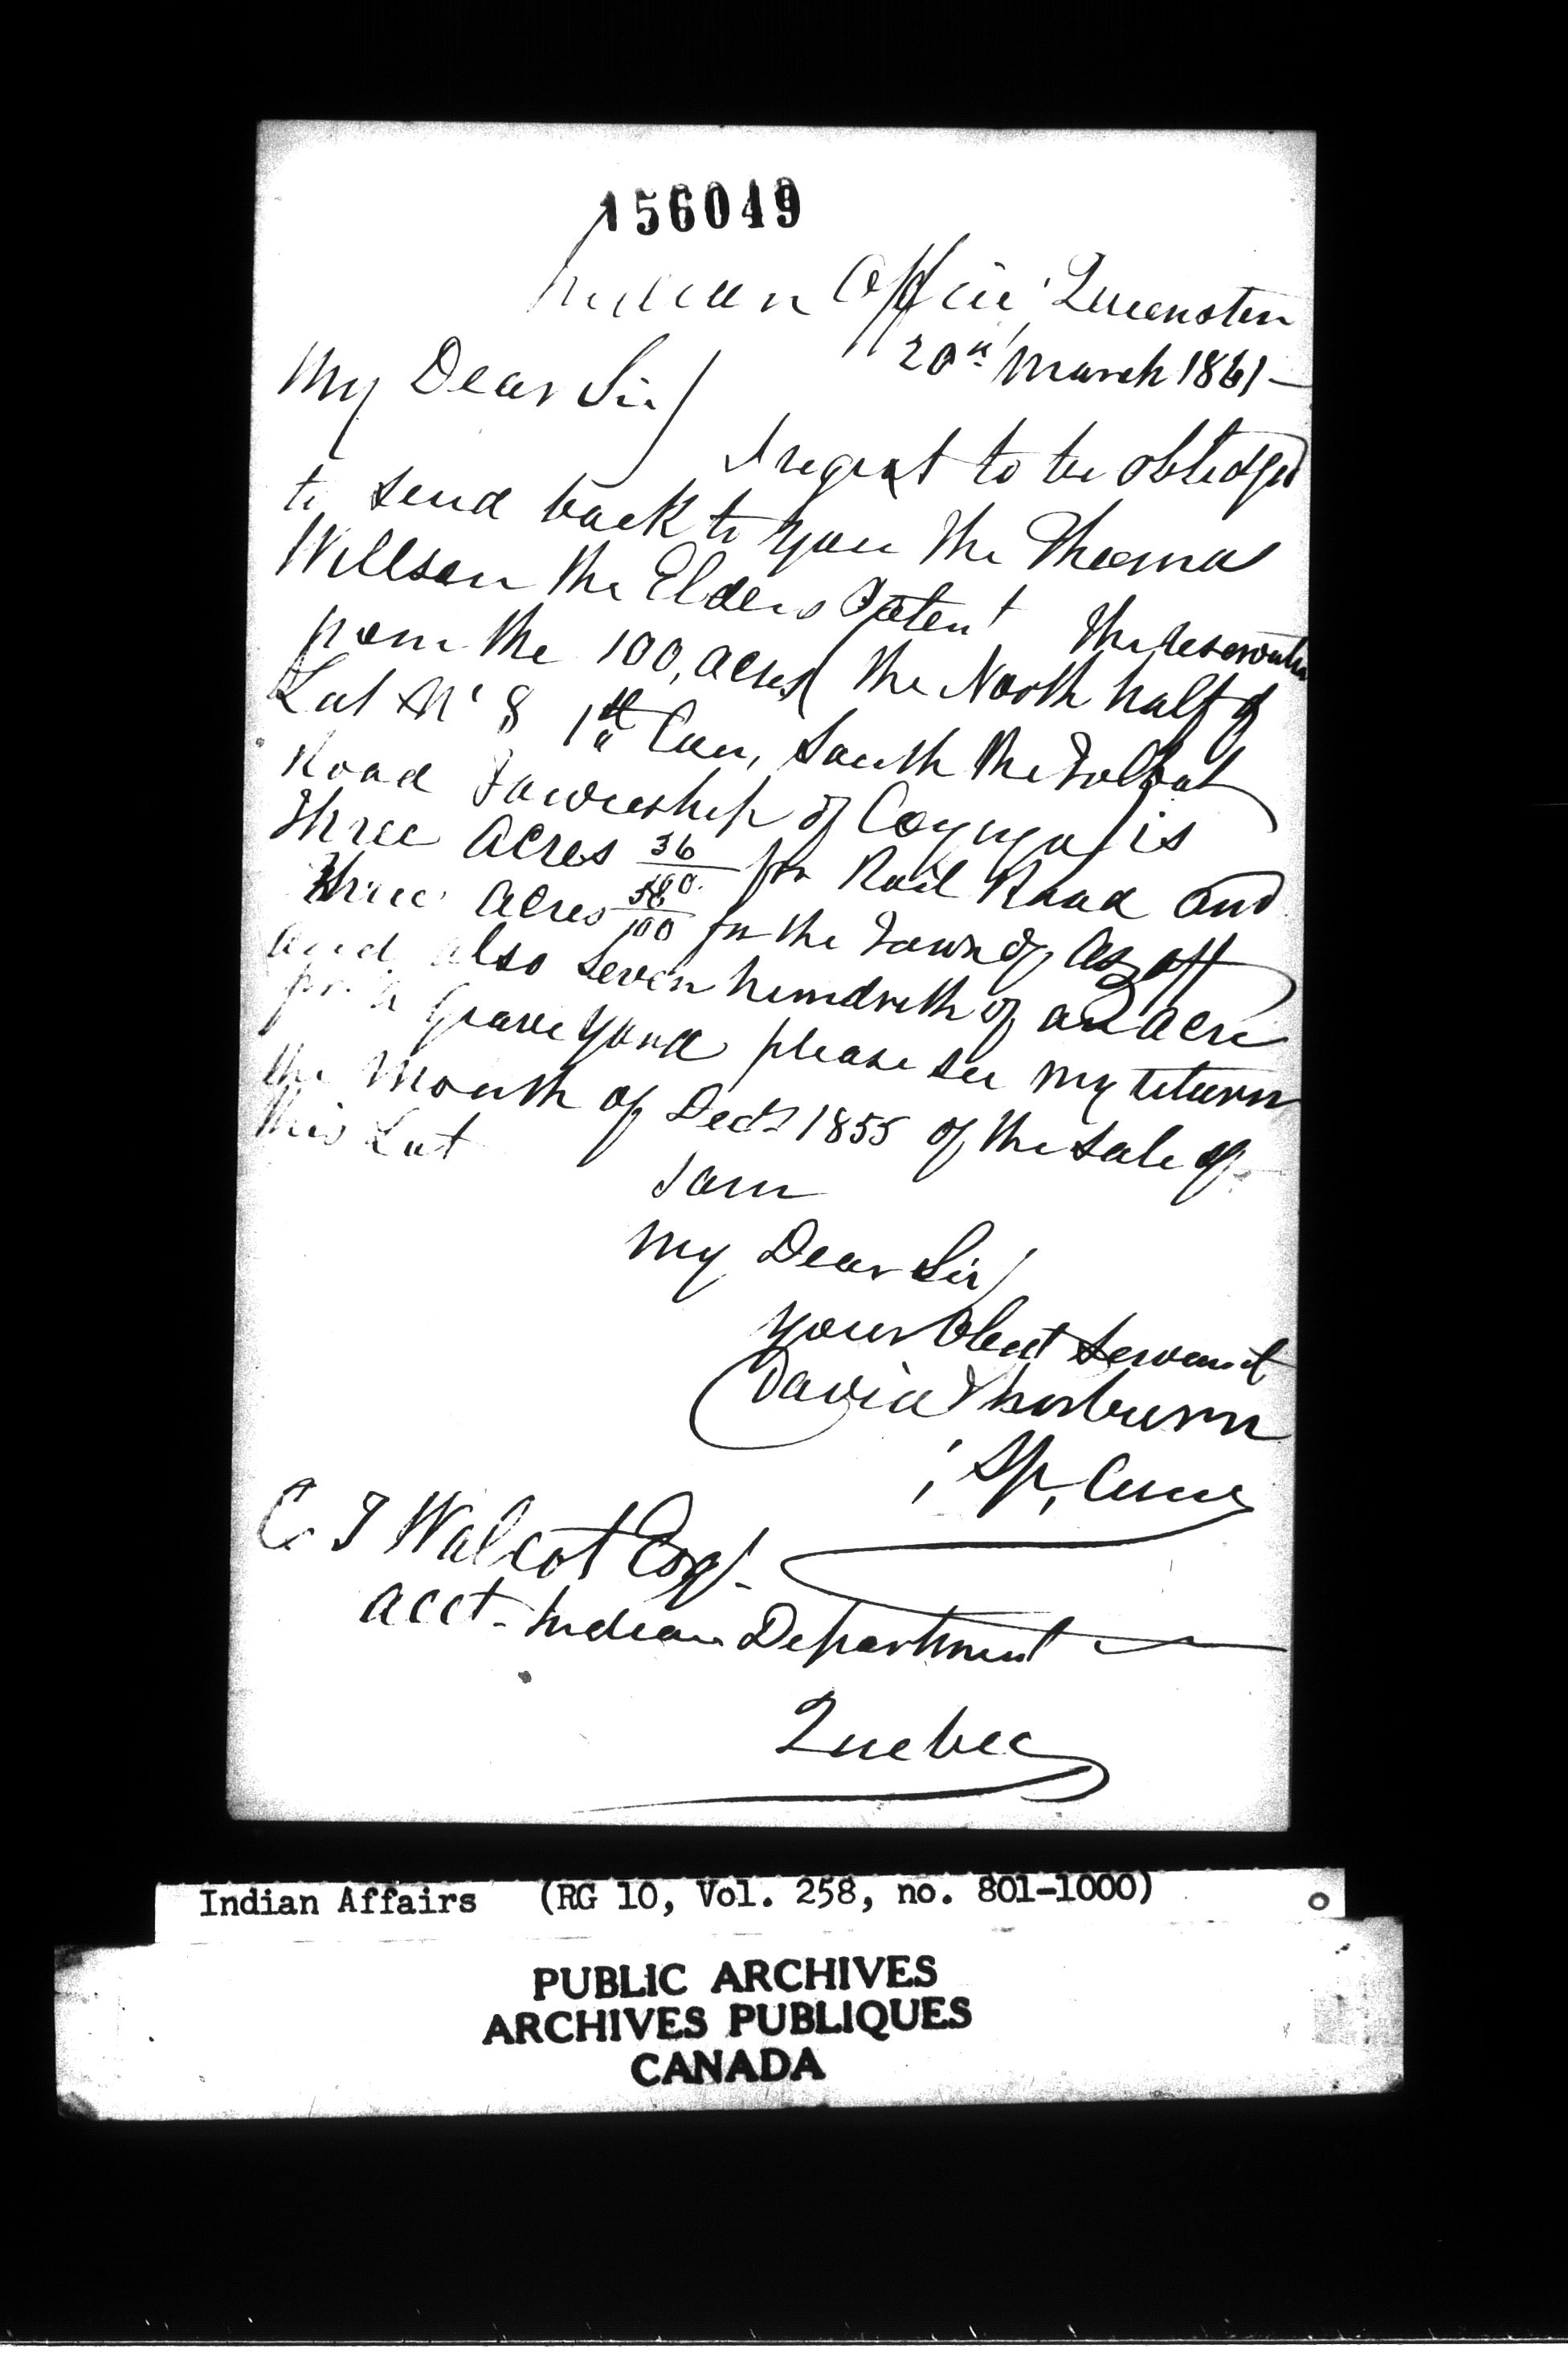 156049
Indian Office Queenston
20th March 1861 -
My Dear Sir/
I regret to be obliedged
to send back to you the Thomas
Willson the Elders Patent the reservation
from the 100, acres (the North half of
Lot No 8 1st Con, South the Talbot
Road Township of Cayuga) is
three Acres 36/100 for Rail Road and
three acres 58/100 for the Town of Azoff
and also seven hundreth of an acre
for a Grave Yard please see my return
the month of Decr 1855 of the Sale of
this Lot
I am
My Dear Sir/
your Obent Servant
David Thorburn
Sp, Comr
C T Walcot Esqr.
acct. Indian Department
Quebec
Indian Affairs (RG 10, Vol. 258, no. 801-1000)
PUBLIC ARCHIVES
ARCHIVES PUBLIQUES
CANADA